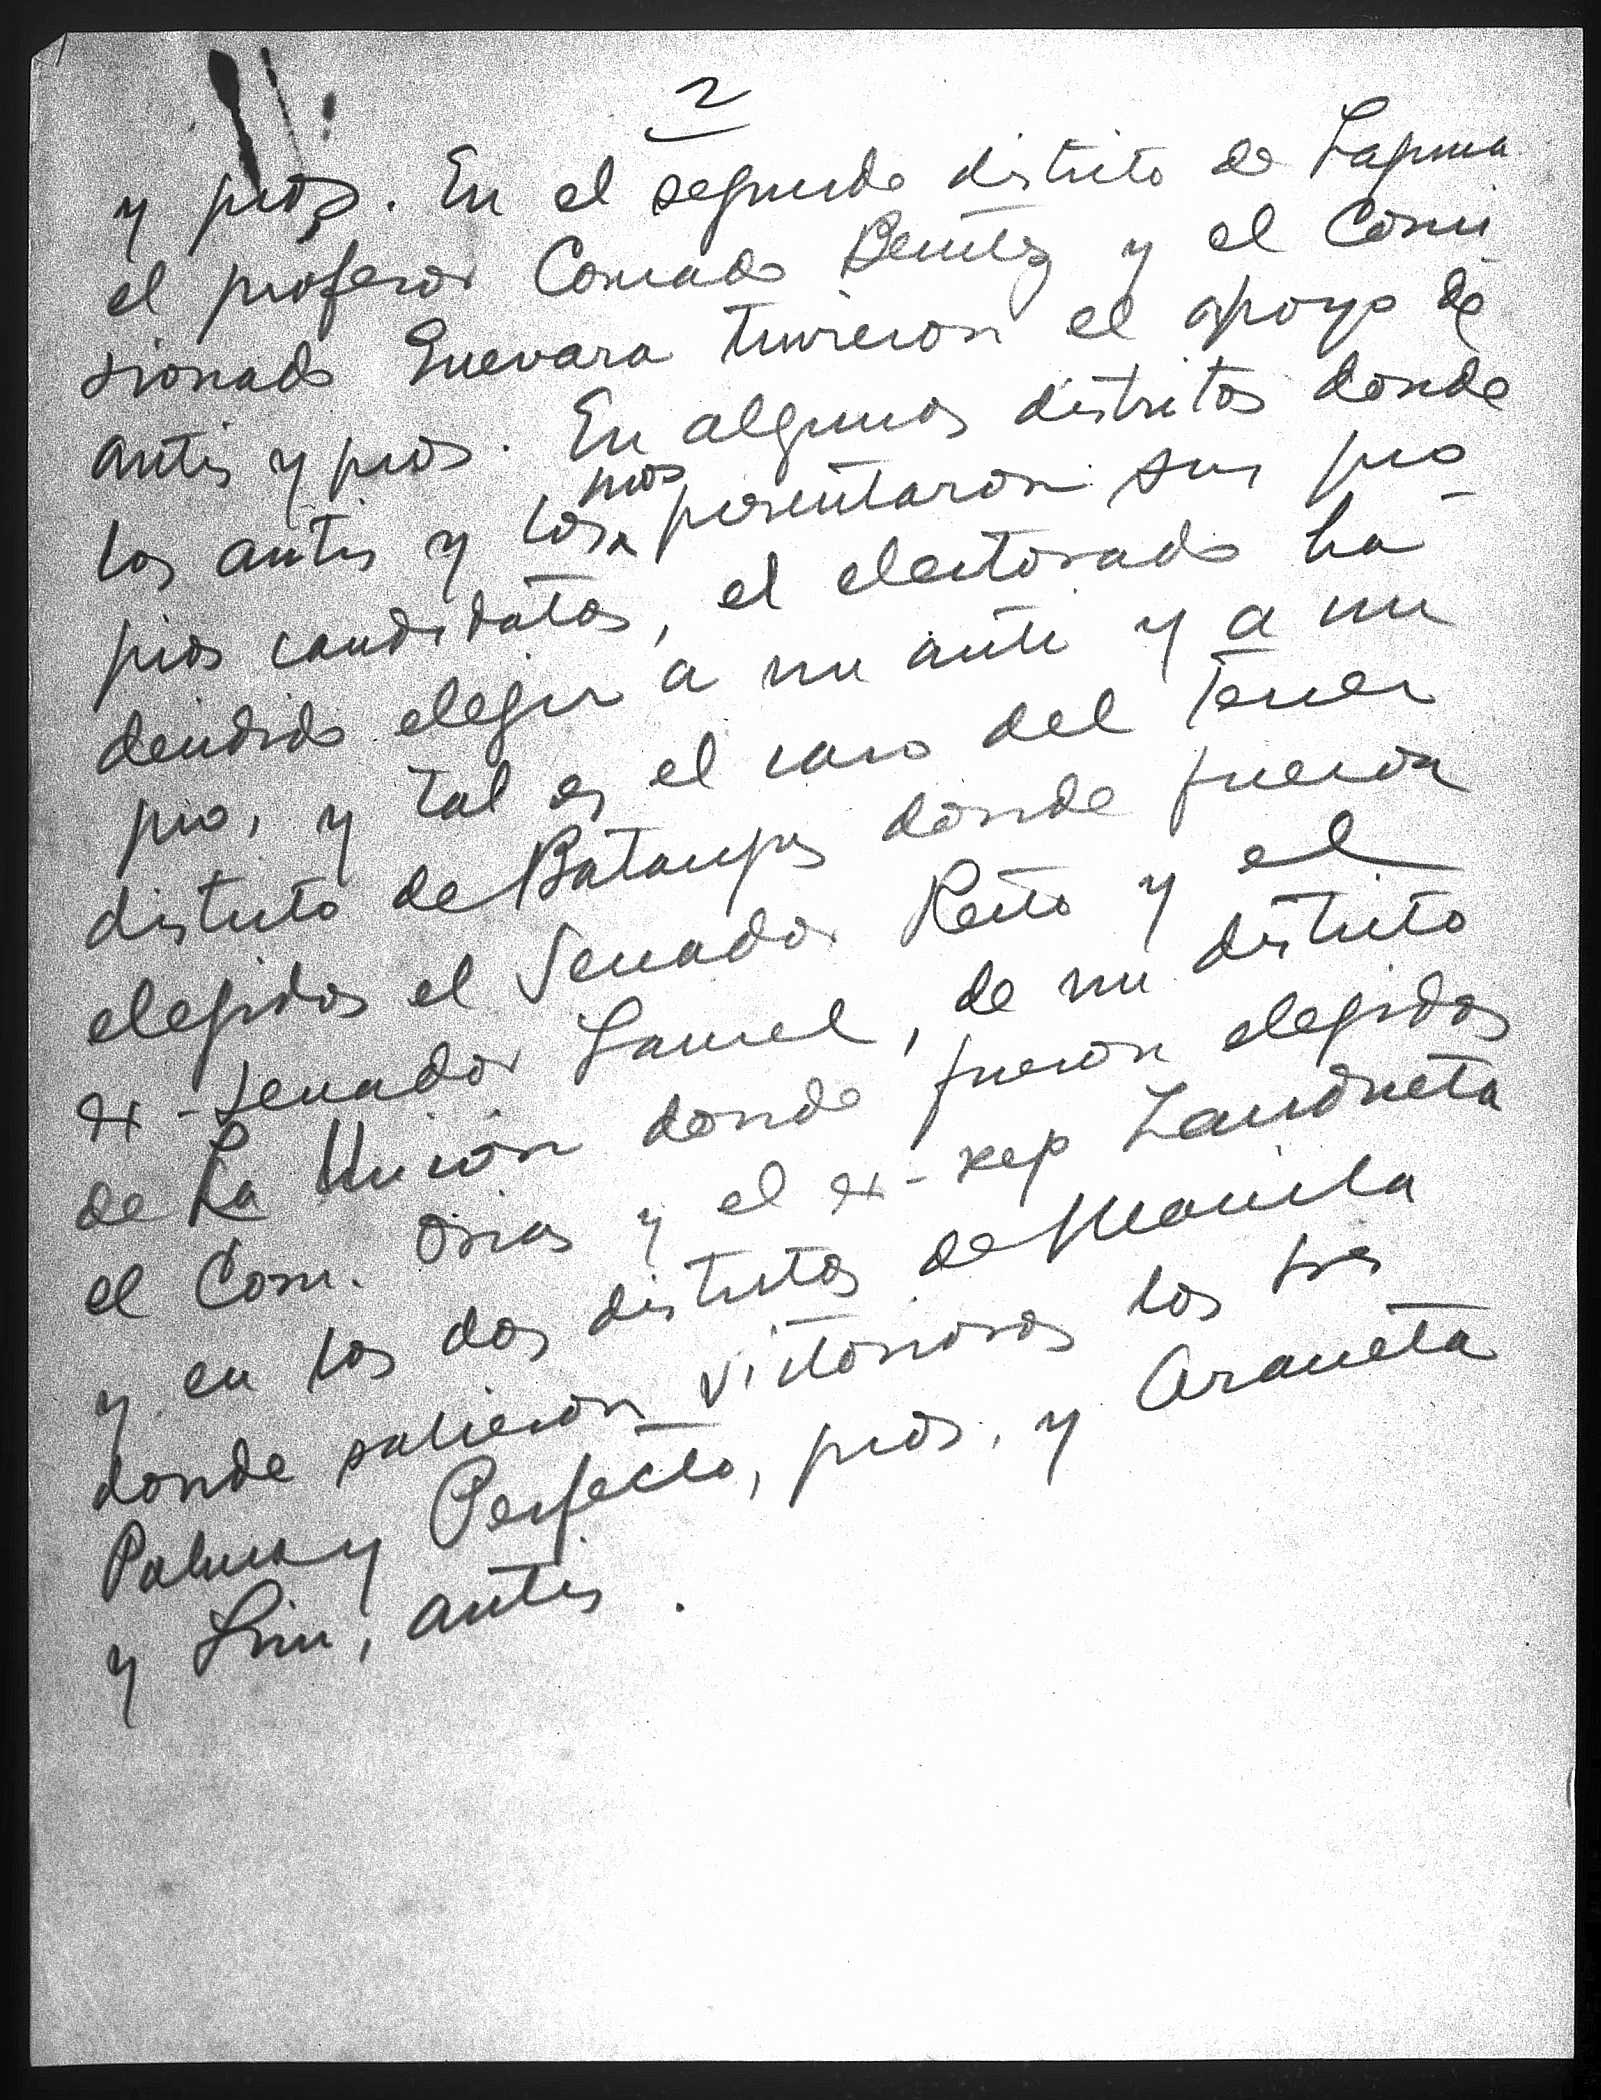 2
y pros. En el segundo distrito de Laguna
el profesor Conrado Benitez y el Comi-
sionado Guevara tuvieron el apoyo de
antis y pros. En algunos distritos donde
los antis y los pros presentaron sus pro-
pios candidatos, el electorado ha
decidido elegir a un anti y a un
pro, y tal es el caso del Tercer
distrito de Batangas donde fueron
elegidos el Senador Recto y el
ex-senador Laurel, de mi distrito
de La Union donde fueron elegidos
el Com. Osias y el ex-rep Zandueta
y en los dos distritos de Manila
donde salieron victoriosos los Srs
Palma y Perfecto, pros, y Araneta
y Lim, antis.